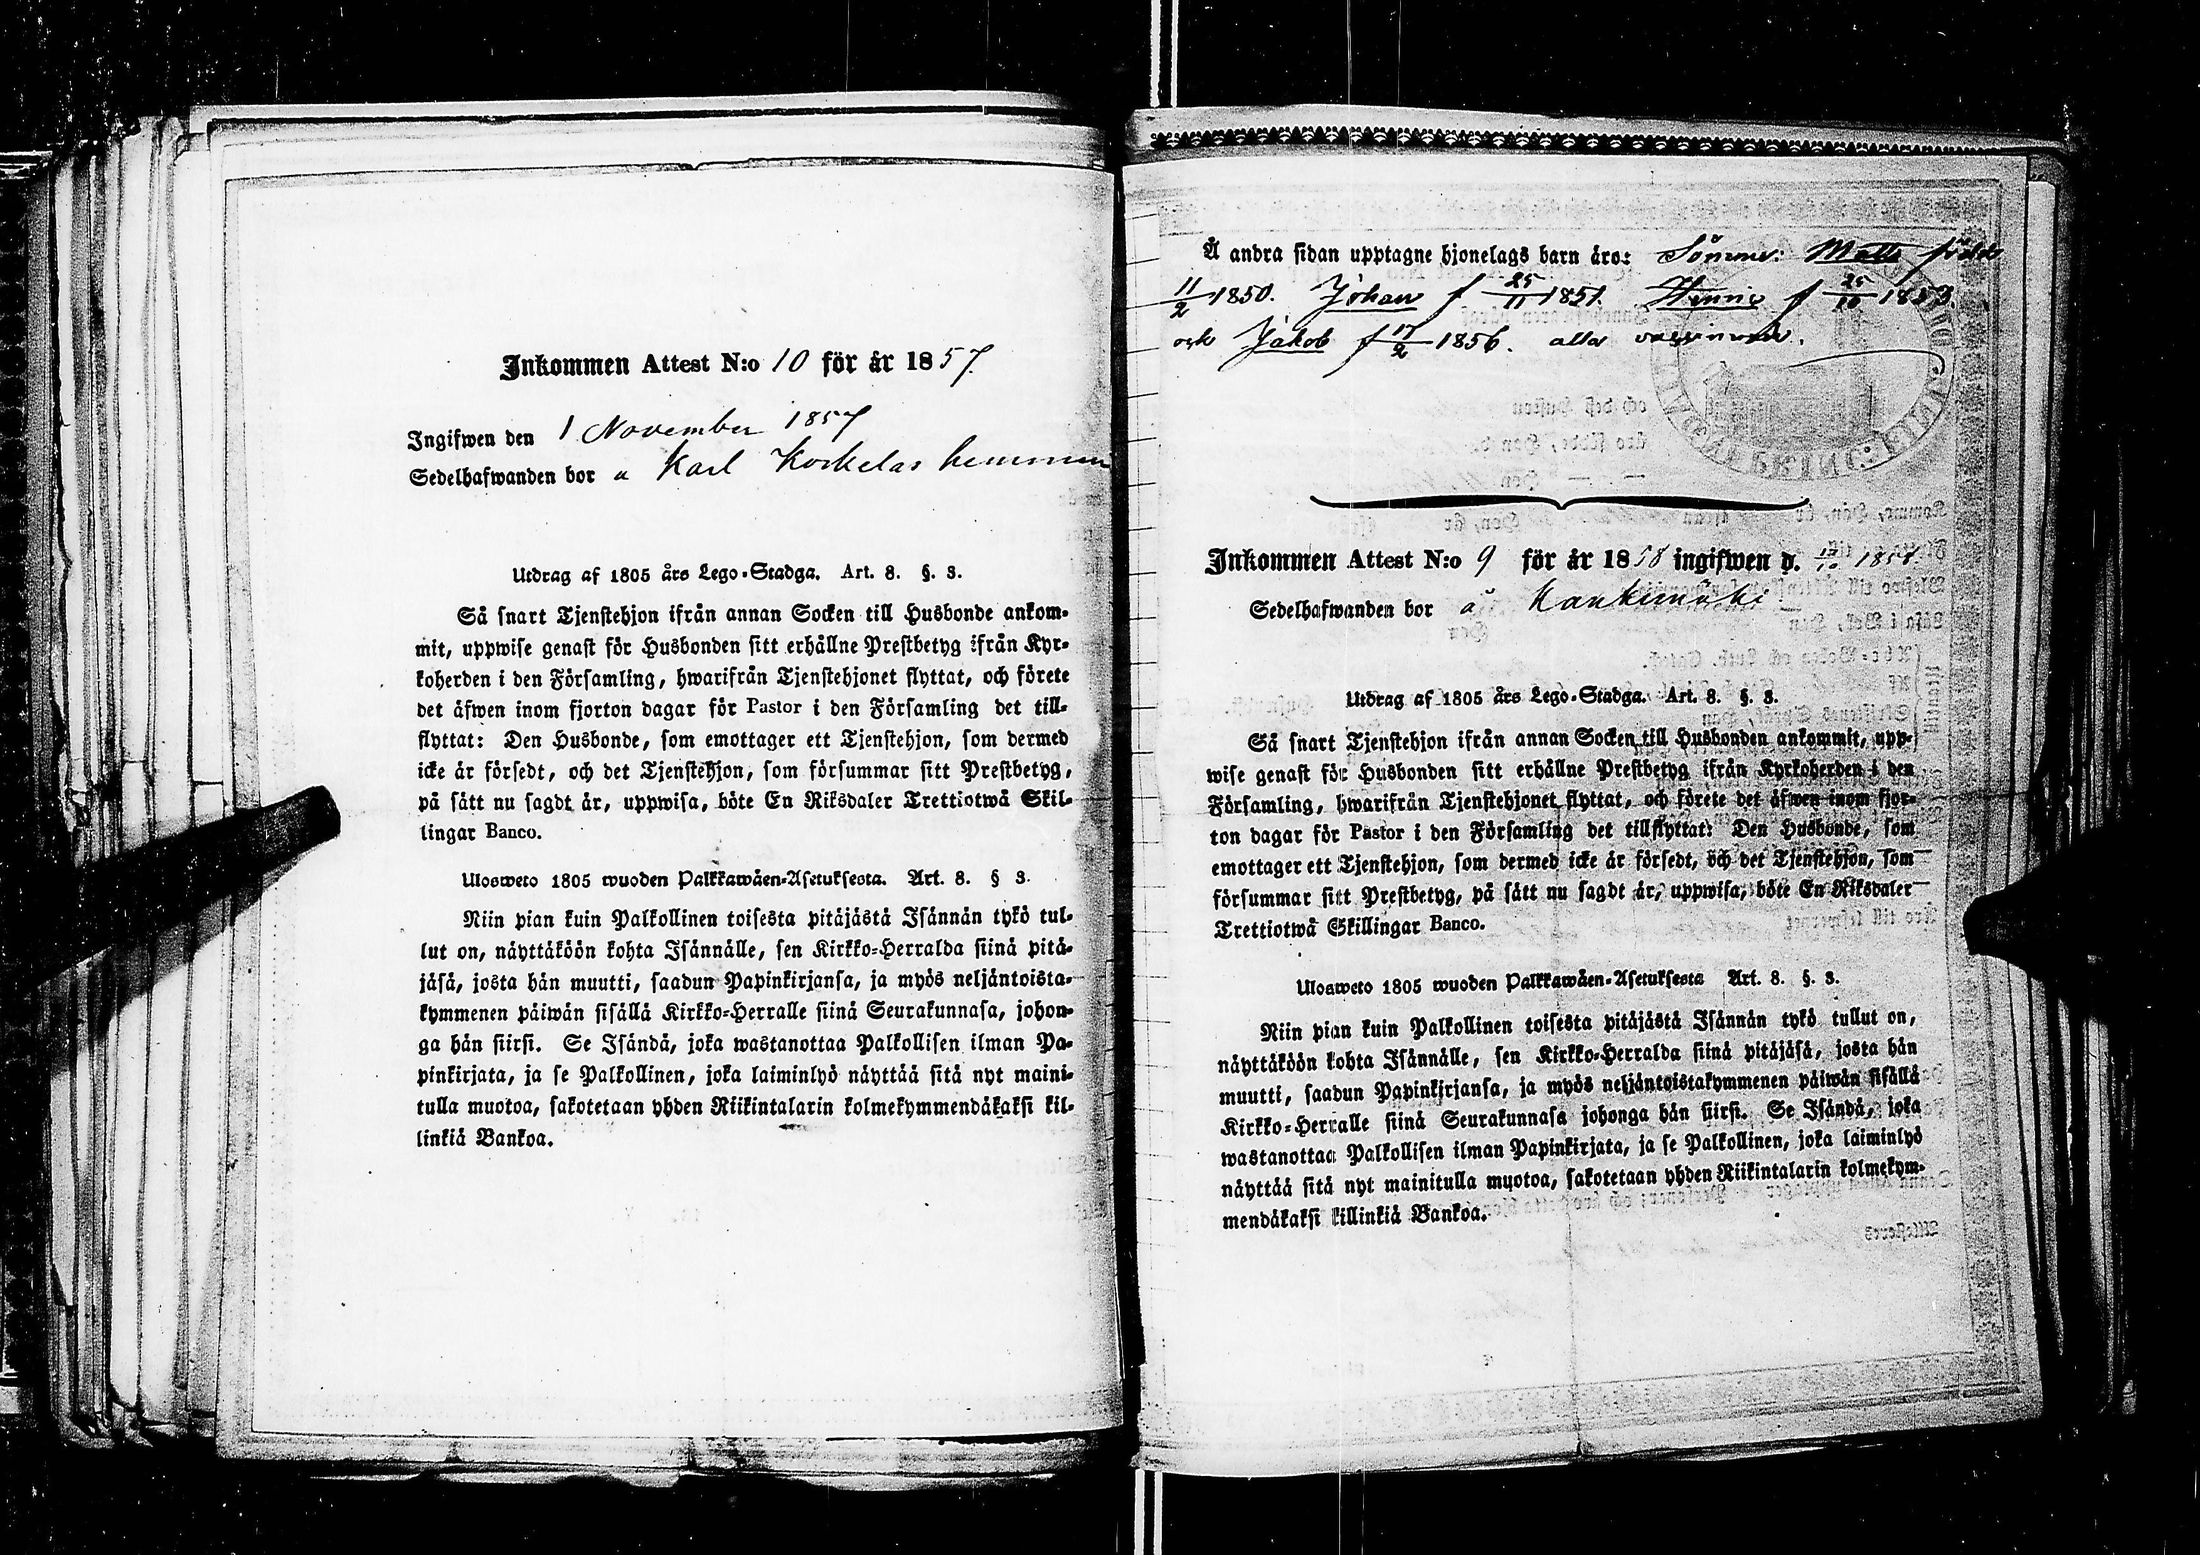 Inkommen Attest N:o 10 för år 1857.
Ingifwen den 1 November 1857
Sedelhafwanden bor a Karl Korkelas hemman
Utdrag af 1805 års Lego-Stadga. Art. 8. §. 3.
Så snart Tjenstehjon ifrån annan Socken till Husbonde ankom-
mit, uppwise genast för Husbonden sitt erhållne Prestbetyg ifrån Kyr-
koherden i den Församling, hwarifrån Tjenstehjonet flyttat, och förete
det äfwen inom fjorton dagar för Pastor i den Församling det till-
flyttat: Den Husbonde, som emottager ett Tjenstehjon, som dermed
icke är försedt, och det Tjenstehjon, som försummar sitt Prestbetyg,
på sätt nu sagdt är, uppwisa, böte En Riksdaler Trettiotwå Skil-
lingar Banco.
Ulosweto 1805 wuoden Palkkawäen-Asetuksesta. Art. 8. § 3.
Niin pian kuin Palkollinen toisesta pitäjästä Isännän tykö tul-
lut on, näyttäköön kohta Isännälle, sen Kirkko-Herralda siinä pitä-
jäsä, josta hän muutti, saadun Papinkirjansa, ja myös neljäntoista-
kymmenen päiwän sisällä Kirkko-Herralle siinä Seurakunnasa, johon-
ga hän siirsi. Se Isändä, joka wastanottaa Palkollisen ilman Pa-
pinkirjata, ja se Palkollinen, joka laiminlyö näyttää sitä nyt maini-
tulla muotoa, sakotetaan yhden Riikintalarin kolmekymmendäkaksi kil-
linkiä Bankoa.
Å andra sidan upptagne hjonelags barn äro: Söner: Matts född
11/2 1850. Johan f 25/11 1851. Henric f 25/10 1853
och Jakob f 17/2 1856. alla vaccinerade.
Inkommen Attest N:o 9 för år 1858 ingifwen d.
Sedelhafwanden bor å Kankimäki
Utdrag af 1805 års Lego-Stadga. Art. 8. §. 3.
Så snart Tjenstehjon ifrån annan Socken till Husbonden ankommit, upp-
wise genast för Husbonden sitt erhållne Prestbetyg ifrån Kyrkoherden i den
Församling, hwarifrån Tjenstehjonet flyttat, och förete det äfwen inom fjor-
ton dagar för Pastor i den Församling det tillflyttat: Den Husbonde, som
emottager ett Tjenstehjon, som dermed icke är försedt, och det Tjenstehjon, som
försummar sitt Prestbetyg, på sätt nu sagdt är, uppwisa, böte En Riksdaler
Trettiotwå Skillingar Banco.
Ulosweto 1805 wuoden Palkkawäen-Asetuksesta Art. 8. §. 3.
Niin pian kuin Palkollinen toisesta pitäjästä Isännän tykö tullut on,
näyttäköön kohta Isännälle, sen Kirkko-Herralda siinä pitäjäsä, josta hän
muutti, saadun Papinkirjansa, ja myös neljäntoistakymmenen päiwän sisällä
Kirkko-Herralle siinä Seurakunnasa johonga hän siirsi. Se Isändä, joka
wastanottaa Palkollisen ilman Papinkirjata, ja se Palkollinen, joka laiminlyö
näyttää sitä nyt mainitulla muotoa, sakotetaan yhden Riikintalarin kolmekym-
mendäkaksi killinkiä Bankoa.